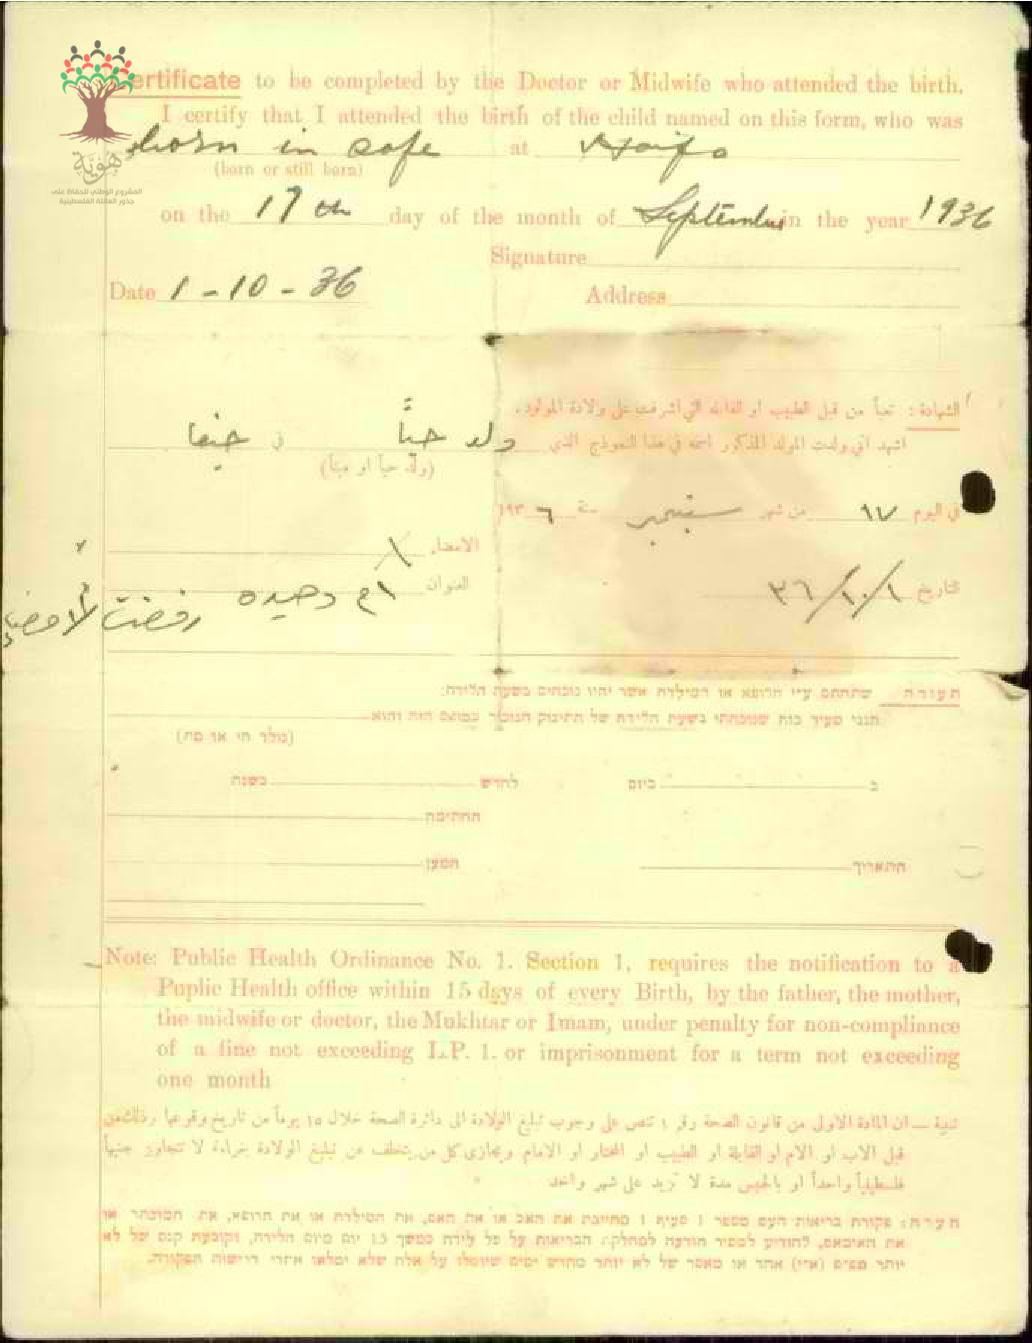 هوية
المشروع الوطني للحفاظ على
جذور العائلة الفلسطينية
ertificate to be completed by the Doctor or Midwife who attended the birth.
I certify that I attended the birth of the child named on this form, who was
born in safe at Haifa
(born or still born)
on the 17th day of the month of September in the year 1936
Signature
Date 1-10-36 Address
الشهادة : تعبأ من قبل الطبيب او القابلة التي اشرفت على ولادة المولود.
اشهد اني ولدت المولد المذكور اسمه في هذا النموذج الذي ولد حيّاً في حيفا
(ولد حياً او ميتاً)
في اليوم ١٧ من شهر سبتمبر سنة ١٩٣٦
الامضاء
التاريخ ٣٦/١٠/١ العنوان ام وحيده رفضت لأمضاء
תעודה שתחתם ע״י הרופא או המילדת אשר יהיו נוכחים בשעת הלידה:
הנני מעיד בזה שנוכחתי בשעת הלידה של התינוק הנזכר בטופס הזה והוא
(נולד חי או מת)
ב ביום לחדש בשנת
החתימה
התאריך המען
Note: Public Health Ordinance No. 1. Section 1, requires the notification to a
Puplic Health office within 15 days of every Birth, by the father, the mother,
the midwife or doctor, the Mukhtar or Imam, under penalty for non-compliance
of a fine not exceeding L.P. 1. or imprisonment for a term not exceeding
one month
تنبيه — ان المادة الاولى من قانون الصحة رقم ١ تنص على وجوب تبليغ الولادة الى دائرة الصحة خلال ١٥ يوماً من تاريخ وقوعها وذلك من
قبل الاب او الام او القابلة او الطبيب او المختار او الامام ويجازى كل من يتخلف عن تبليغ الولادة بغرامة لا تتجاوز جنيهاً
فلسطينياً واحداً او بالحبس مدة لا تزيد على شهر واحد
הערה: פקודת בריאות העם מספר 1 סעיף 1 מחייבת את האב או את האם, את המילדת או את הרופא, את המוכתר או
את האימאם, להודיע למשרד הבריאות על כל לידה במשך 15 יום מיום הלידה, וקובעת קנס של לא
יותר מפ״ם (א״י) אחד או מאסר של לא יותר מחדש ימים שיוטלו על אלה שלא ימלאו אחרי דרישות הפקודה.